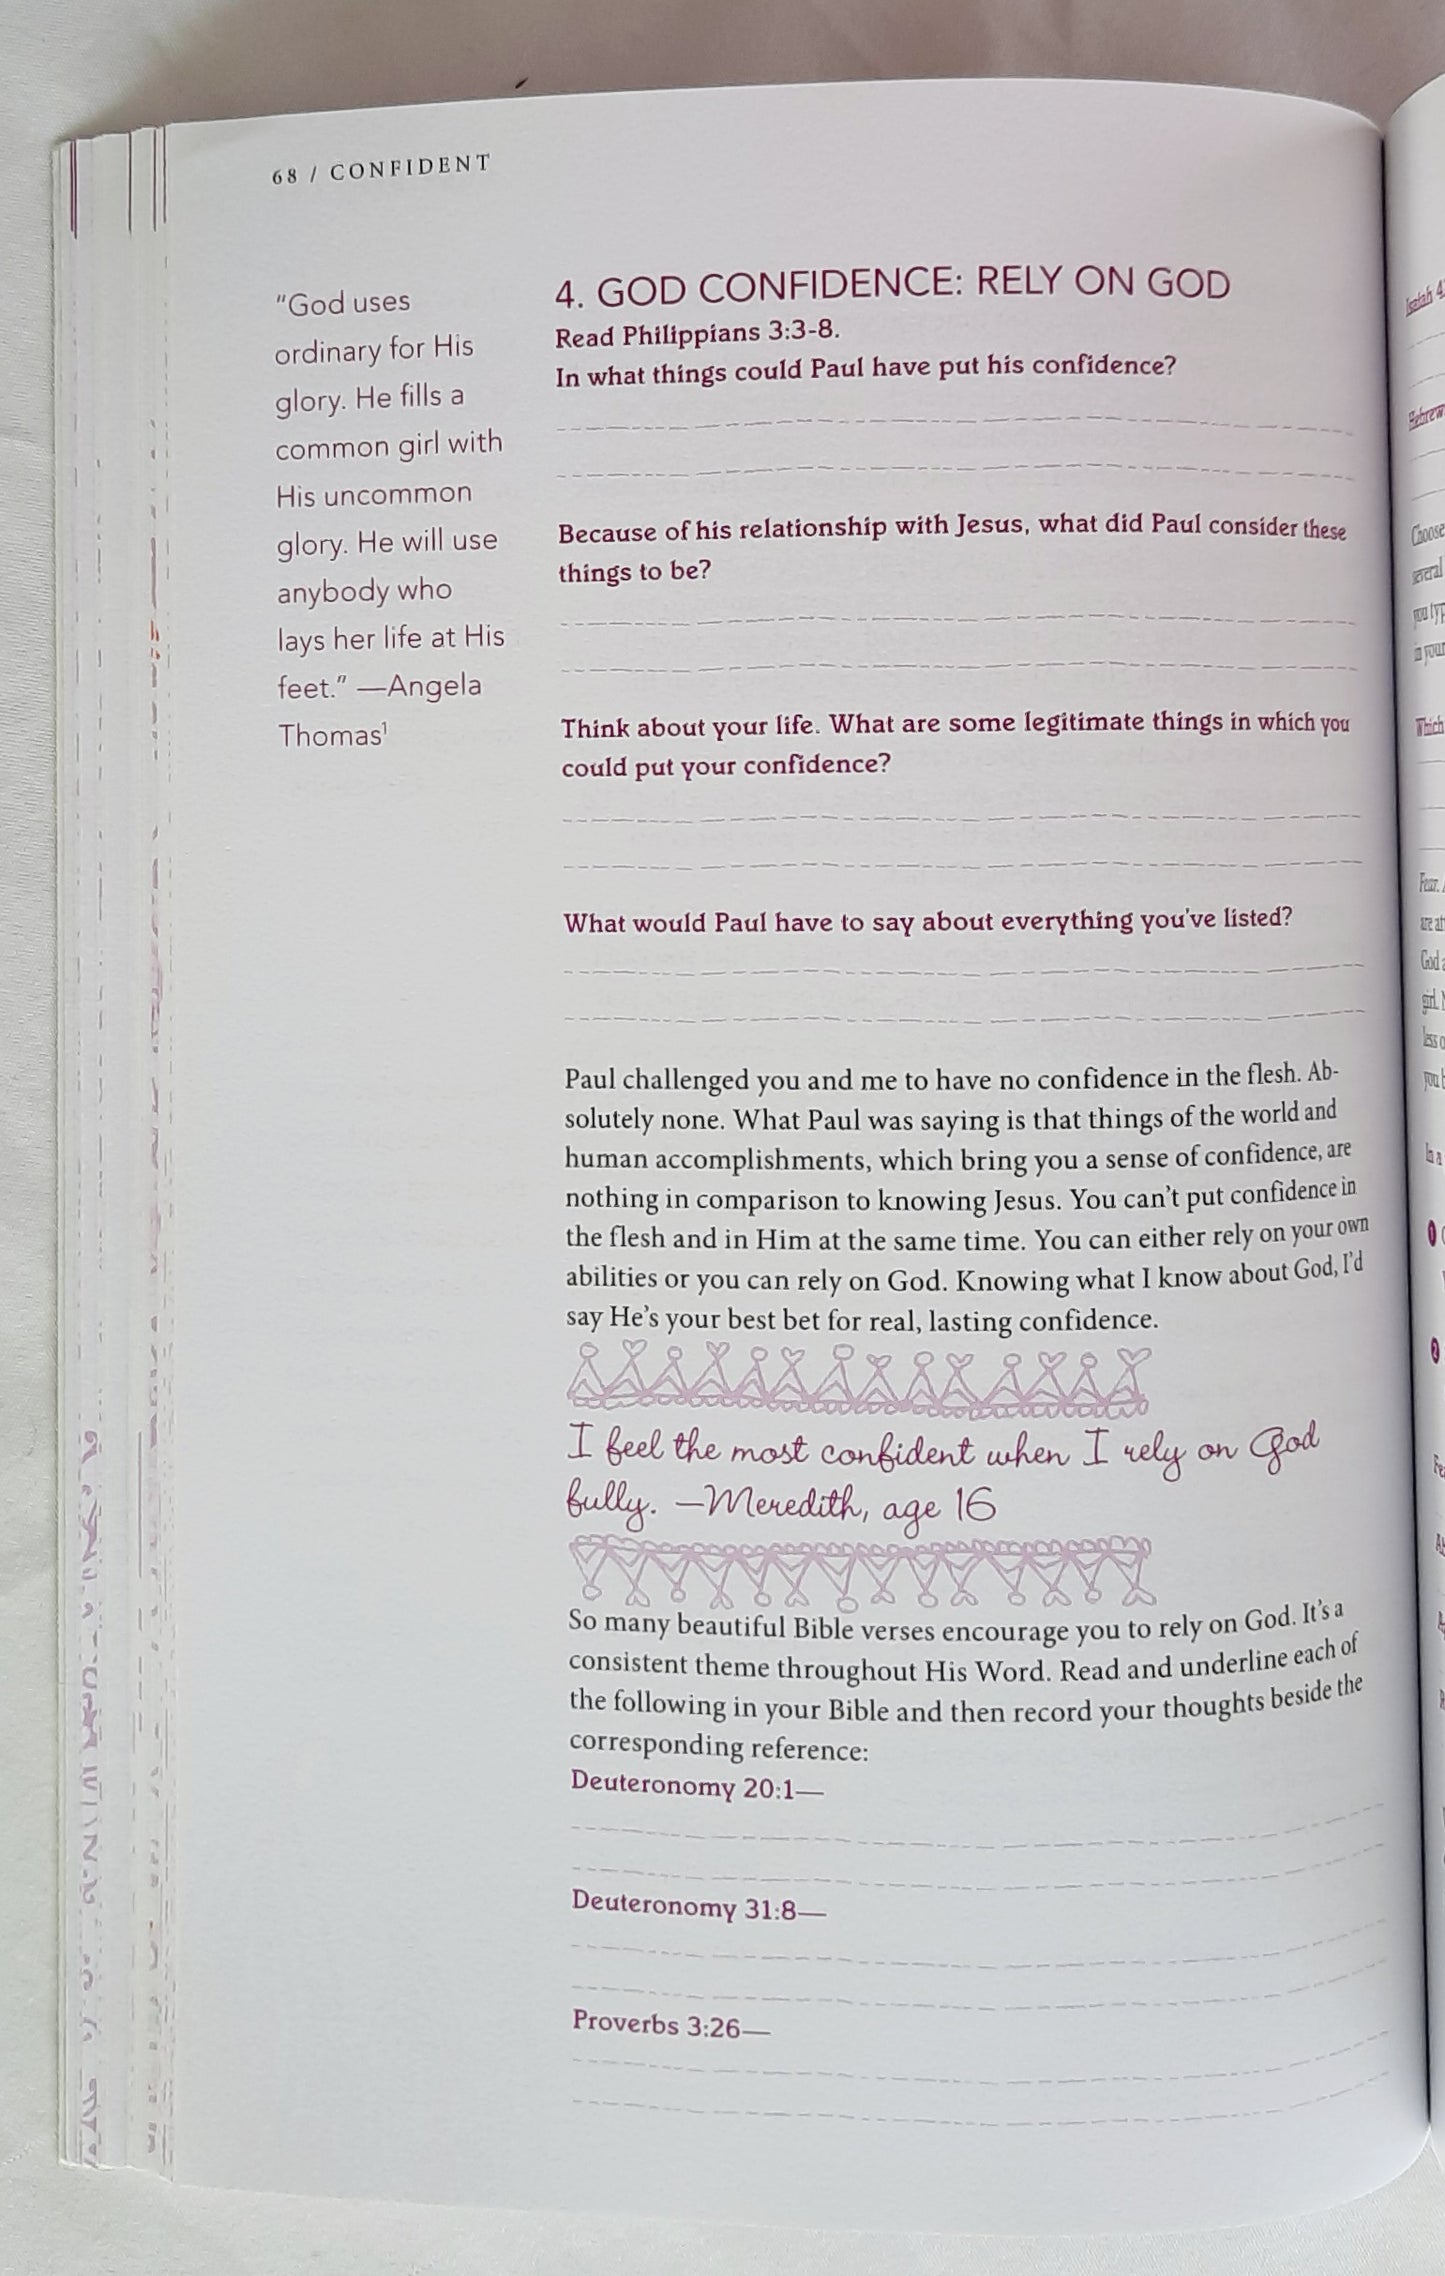 68 / CONFIDENT
"God uses
ordinary for His
glory. He fills a
common girl with
His uncommon
glory. He will use
anybody who
lays her life at His
feet." —Angela
Thomas¹
4. GOD CONFIDENCE: RELY ON GOD
Read Philippians 3:3-8.
In what things could Paul have put his confidence?
Because of his relationship with Jesus, what did Paul consider these
things to be?
Think about your life. What are some legitimate things in which you
could put your confidence?
What would Paul have to say about everything you've listed?
Paul challenged you and me to have no confidence in the flesh. Ab-
solutely none. What Paul was saying is that things of the world and
human accomplishments, which bring you a sense of confidence, are
nothing in comparison to knowing Jesus. You can't put confidence in
the flesh and in Him at the same time. You can either rely on your own
abilities or you can rely on God. Knowing what I know about God, I'd
say He's your best bet for real, lasting confidence.
I feel the most confident when I rely on God
fully. —Meredith, age 16
So many beautiful Bible verses encourage you to rely on God. It's a
consistent theme throughout His Word. Read and underline each of
the following in your Bible and then record your thoughts beside the
corresponding reference:
Deuteronomy 20:1—
Deuteronomy 31:8—
Proverbs 3:26—
Isaiah
Choose
several
in your
Which
Fear.
God
girl.